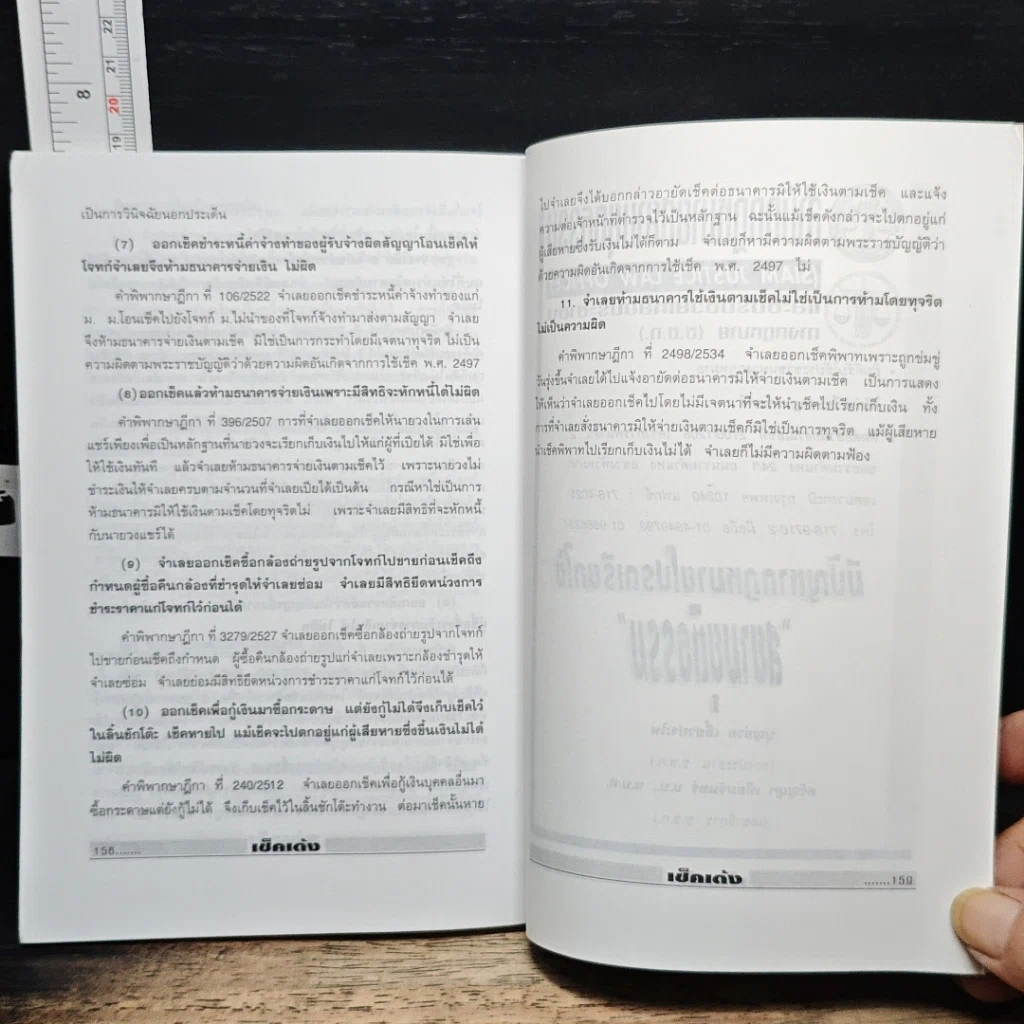 22
21
8
20
19
เป็นการวินิจฉัยนอกประเด็น
(7) ออกเช็คชำระหนี้ค่าจ้างทำของผู้รับจ้างผิดสัญญาโอนเช็คให้
โจทก์จำเลยจึงห้ามธนาคารจ่ายเงิน ไม่ผิด
คำพิพากษาฎีกา ที่ 106/2522 จำเลยออกเช็คชำระหนี้ค่าจ้างทำของแก่
ม. ม.โอนเช็คไปยังโจทก์ ม.ไม่นำของที่โจทก์จ้างทำมาส่งตามสัญญา จำเลย
จึงห้ามธนาคารจ่ายเงินตามเช็ค มิใช่เป็นการกระทำโดยมีเจตนาทุจริต ไม่เป็น
ความผิดตามพระราชบัญญัติว่าด้วยความผิดอันเกิดจากการใช้เช็ค พ.ศ. 2497
(8) ออกเช็คแล้วห้ามธนาคารจ่ายเงินเพราะมีสิทธิจะหักหนี้ได้ไม่ผิด
คำพิพากษาฎีกา ที่ 396/2507 การที่จำเลยออกเช็คให้นายวงในการเล่น
แชร์เพียงเพื่อเป็นหลักฐานที่นายวงจะเรียกเก็บเงินไปให้แก่ผู้ที่เปียได้ มิใช่เพื่อ
ให้ใช้เงินทันที แล้วจำเลยห้ามธนาคารจ่ายเงินตามเช็คไว้ เพราะนายวงไม่
ชำระเงินให้จำเลยครบตามจำนวนที่จำเลยเปียได้เป็นต้น กรณีหาใช่เป็นการ
ห้ามธนาคารมิให้ใช้เงินตามเช็คโดยทุจริตไม่ เพราะจำเลยมีสิทธิที่จะหักหนี้
กับนายวงแชร์ได้
(9) จำเลยออกเช็คซื้อกล้องถ่ายรูปจากโจทก์ไปขายก่อนเช็คถึง
กำหนดผู้ซื้อคืนกล้องที่ชำรุดให้จำเลยซ่อม จำเลยมีสิทธิยึดหน่วงการ
ชำระราคาแก่โจทก์ไว้ก่อนได้
คำพิพากษาฎีกา ที่ 3279/2527 จำเลยออกเช็คซื้อกล้องถ่ายรูปจากโจทก์
ไปขายก่อนเช็คถึงกำหนด ผู้ซื้อคืนกล้องถ่ายรูปแก่จำเลยเพราะกล้องชำรุดให้
จำเลยซ่อม จำเลยย่อมมีสิทธิยึดหน่วงการชำระราคาแก่โจทก์ไว้ก่อนได้
(10) ออกเช็คเพื่อกู้เงินมาซื้อกระดาษ แต่ยังกู้ไม่ได้จึงเก็บเช็คไว้
ในลิ้นชักโต๊ะ เช็คหายไป แม้เช็คจะไปตกอยู่แก่ผู้เสียหายซึ่งขึ้นเงินไม่ได้
ไม่ผิด
คำพิพากษาฎีกา ที่ 240/2512 จำเลยออกเช็คเพื่อกู้เงินบุคคลอื่นมา
ซื้อกระดาษแต่ยังกู้ไม่ได้ จึงเก็บเช็คไว้ในลิ้นชักโต๊ะทำงาน ต่อมาเช็คนั้นหาย
158....... เช็คเด้ง
ไปจำเลยจึงได้บอกกล่าวอายัดเช็คต่อธนาคารมิให้ใช้เงินตามเช็ค และแจ้ง
ความต่อเจ้าหน้าที่ตำรวจไว้เป็นหลักฐาน ฉะนั้นแม้เช็คดังกล่าวจะไปตกอยู่แก่
ผู้เสียหายซึ่งรับเงินไม่ได้ก็ตาม จำเลยก็หามีความผิดตามพระราชบัญญัติว่า
ด้วยความผิดอันเกิดจากการใช้เช็ค พ.ศ. 2497 ไม่
11. จำเลยห้ามธนาคารใช้เงินตามเช็คไม่ใช่เป็นการห้ามโดยทุจริต
ไม่เป็นความผิด
คำพิพากษาฎีกา ที่ 2498/2534 จำเลยออกเช็คพิพาทเพราะถูกข่มขู่
วันรุ่งขึ้นจำเลยได้ไปแจ้งอายัดต่อธนาคารมิให้จ่ายเงินตามเช็ค เป็นการแสดง
ให้เห็นว่าจำเลยออกเช็คไปโดยไม่มีเจตนาที่จะให้นำเช็คไปเรียกเก็บเงิน ทั้ง
การที่จำเลยสั่งธนาคารมิให้จ่ายเงินตามเช็คก็มิใช่เป็นการทุจริต แม้ผู้เสียหาย
นำเช็คพิพาทไปเรียกเก็บเงินไม่ได้ จำเลยก็ไม่มีความผิดตามฟ้อง
เช็คเด้ง .......159